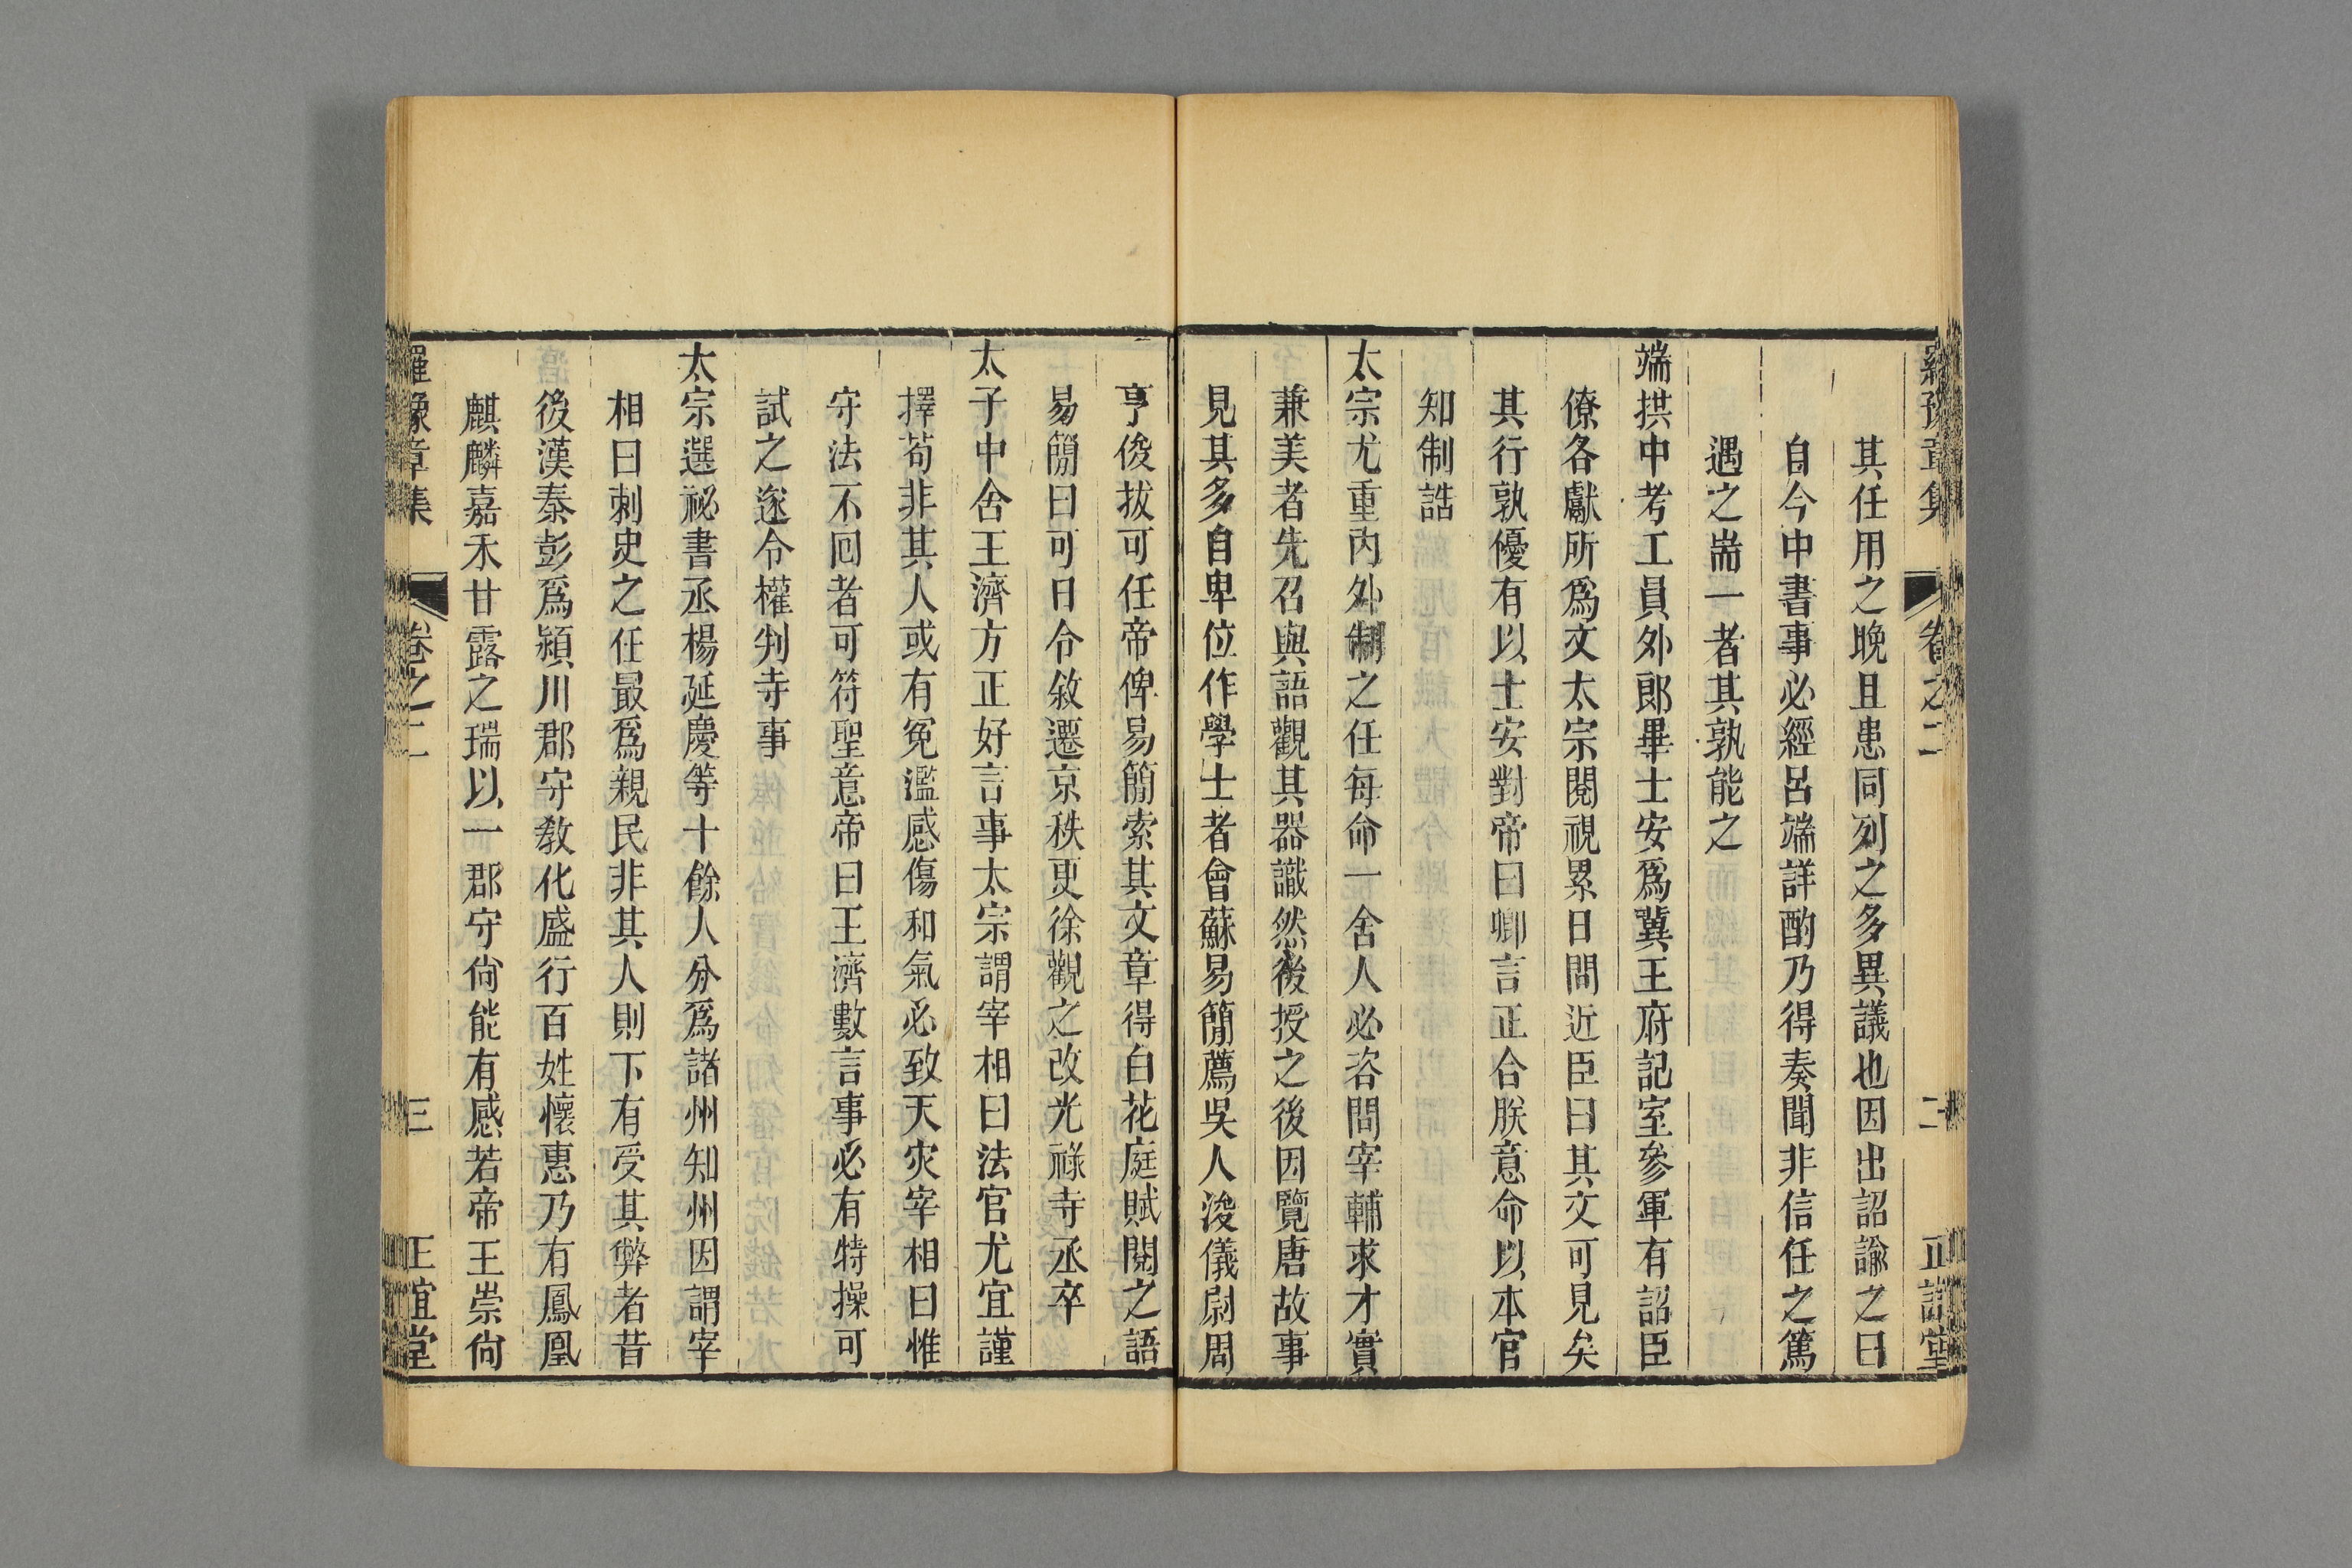 羅豫章集 卷之二 二 正誼堂
其任用之晚且患同列之多異議也因出詔諭之曰
自今中書事必經呂端詳酌乃得奏聞非信任之篤
遇之耑一者其孰能之
端拱中考工員外郎畢士安爲冀王府記室參軍有詔臣
僚各獻所爲文太宗閱視累日問近臣曰其文可見矣
其行孰優有以士安對帝曰卿言正合朕意命以本官
知制誥
太宗尤重內外制之任每命一舍人必咨問宰輔求才實
兼美者先召與語觀其器識然後授之後因覽唐故事
見其多自卑位作學士者會蘇易簡薦吳人浚儀尉周
亨俊拔可任帝俾易簡索其文章得白花庭賦閱之語
易簡曰可日令敘遷京秩更徐觀之改光祿寺丞卒
太子中舍王濟方正好言事太宗謂宰相曰法官尤宜謹
擇苟非其人或有冤濫感傷和氣必致天灾宰相曰惟
守法不回者可符聖意帝曰王濟數言事必有特操可
試之遂令權判寺事
太宗選祕書丞楊延慶等十餘人分爲諸州知州因謂宰
相曰刺史之任最爲親民非其人則下有受其弊者昔
後漢秦彭爲潁川郡守教化盛行百姓懷惠乃有鳳凰
麒麟嘉禾甘露之瑞以一郡守尙能有感若帝王崇尙
羅豫章集 卷之二 三 正誼堂